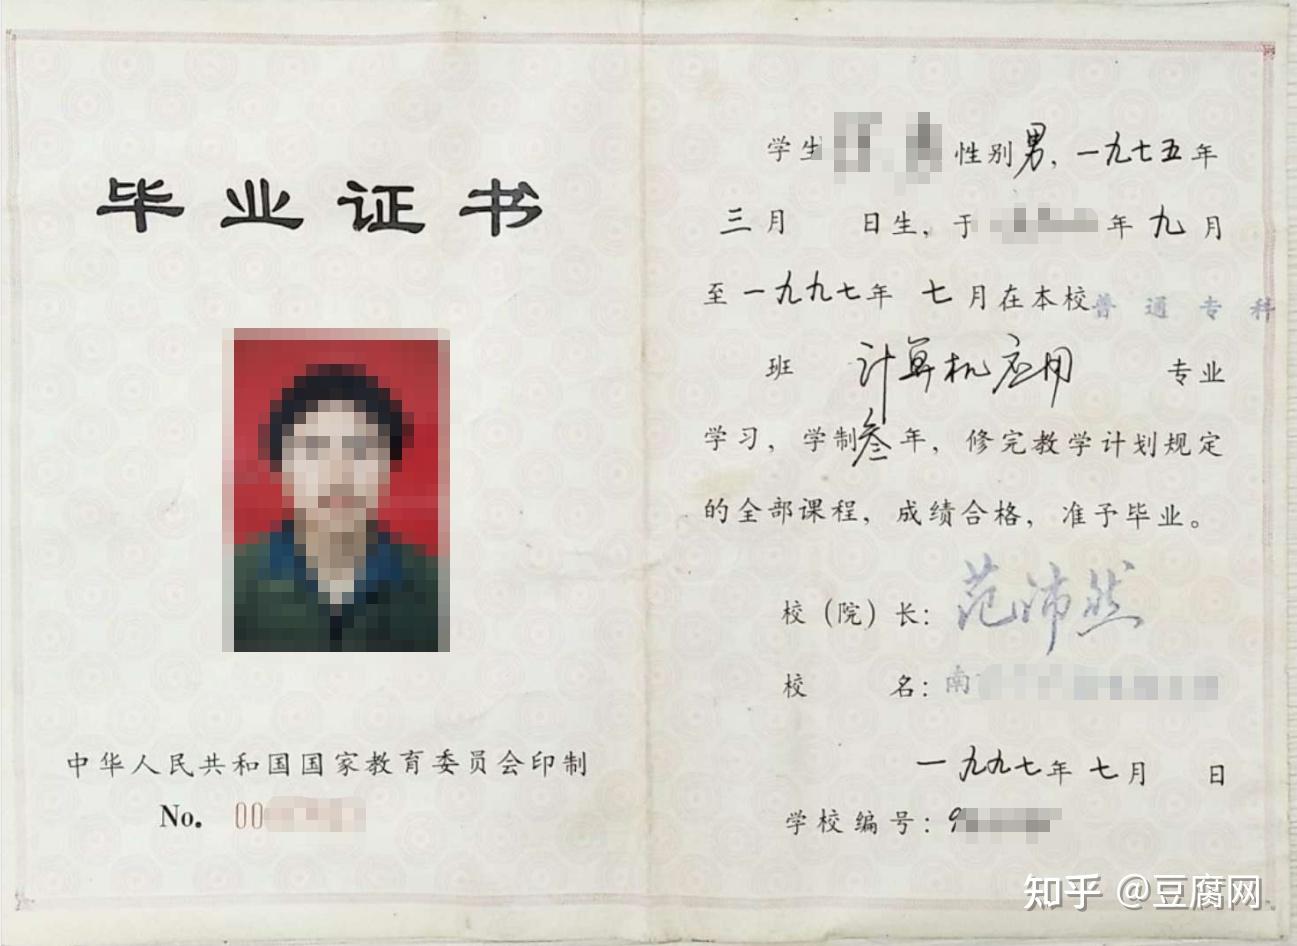 毕业证书
中华人民共和国国家教育委员会印制
No. 00
学生 性别男，一九七五年
三月 日生，于 年九月
至一九九七年 七月在本校普通专科
班 计算机应用 专业
学习，学制叁年，修完教学计划规定
的全部课程，成绩合格，准予毕业。
校（院）长：范沛然
校 名：南
一九九七年七月 日
学校编号：9
知乎 @豆腐网